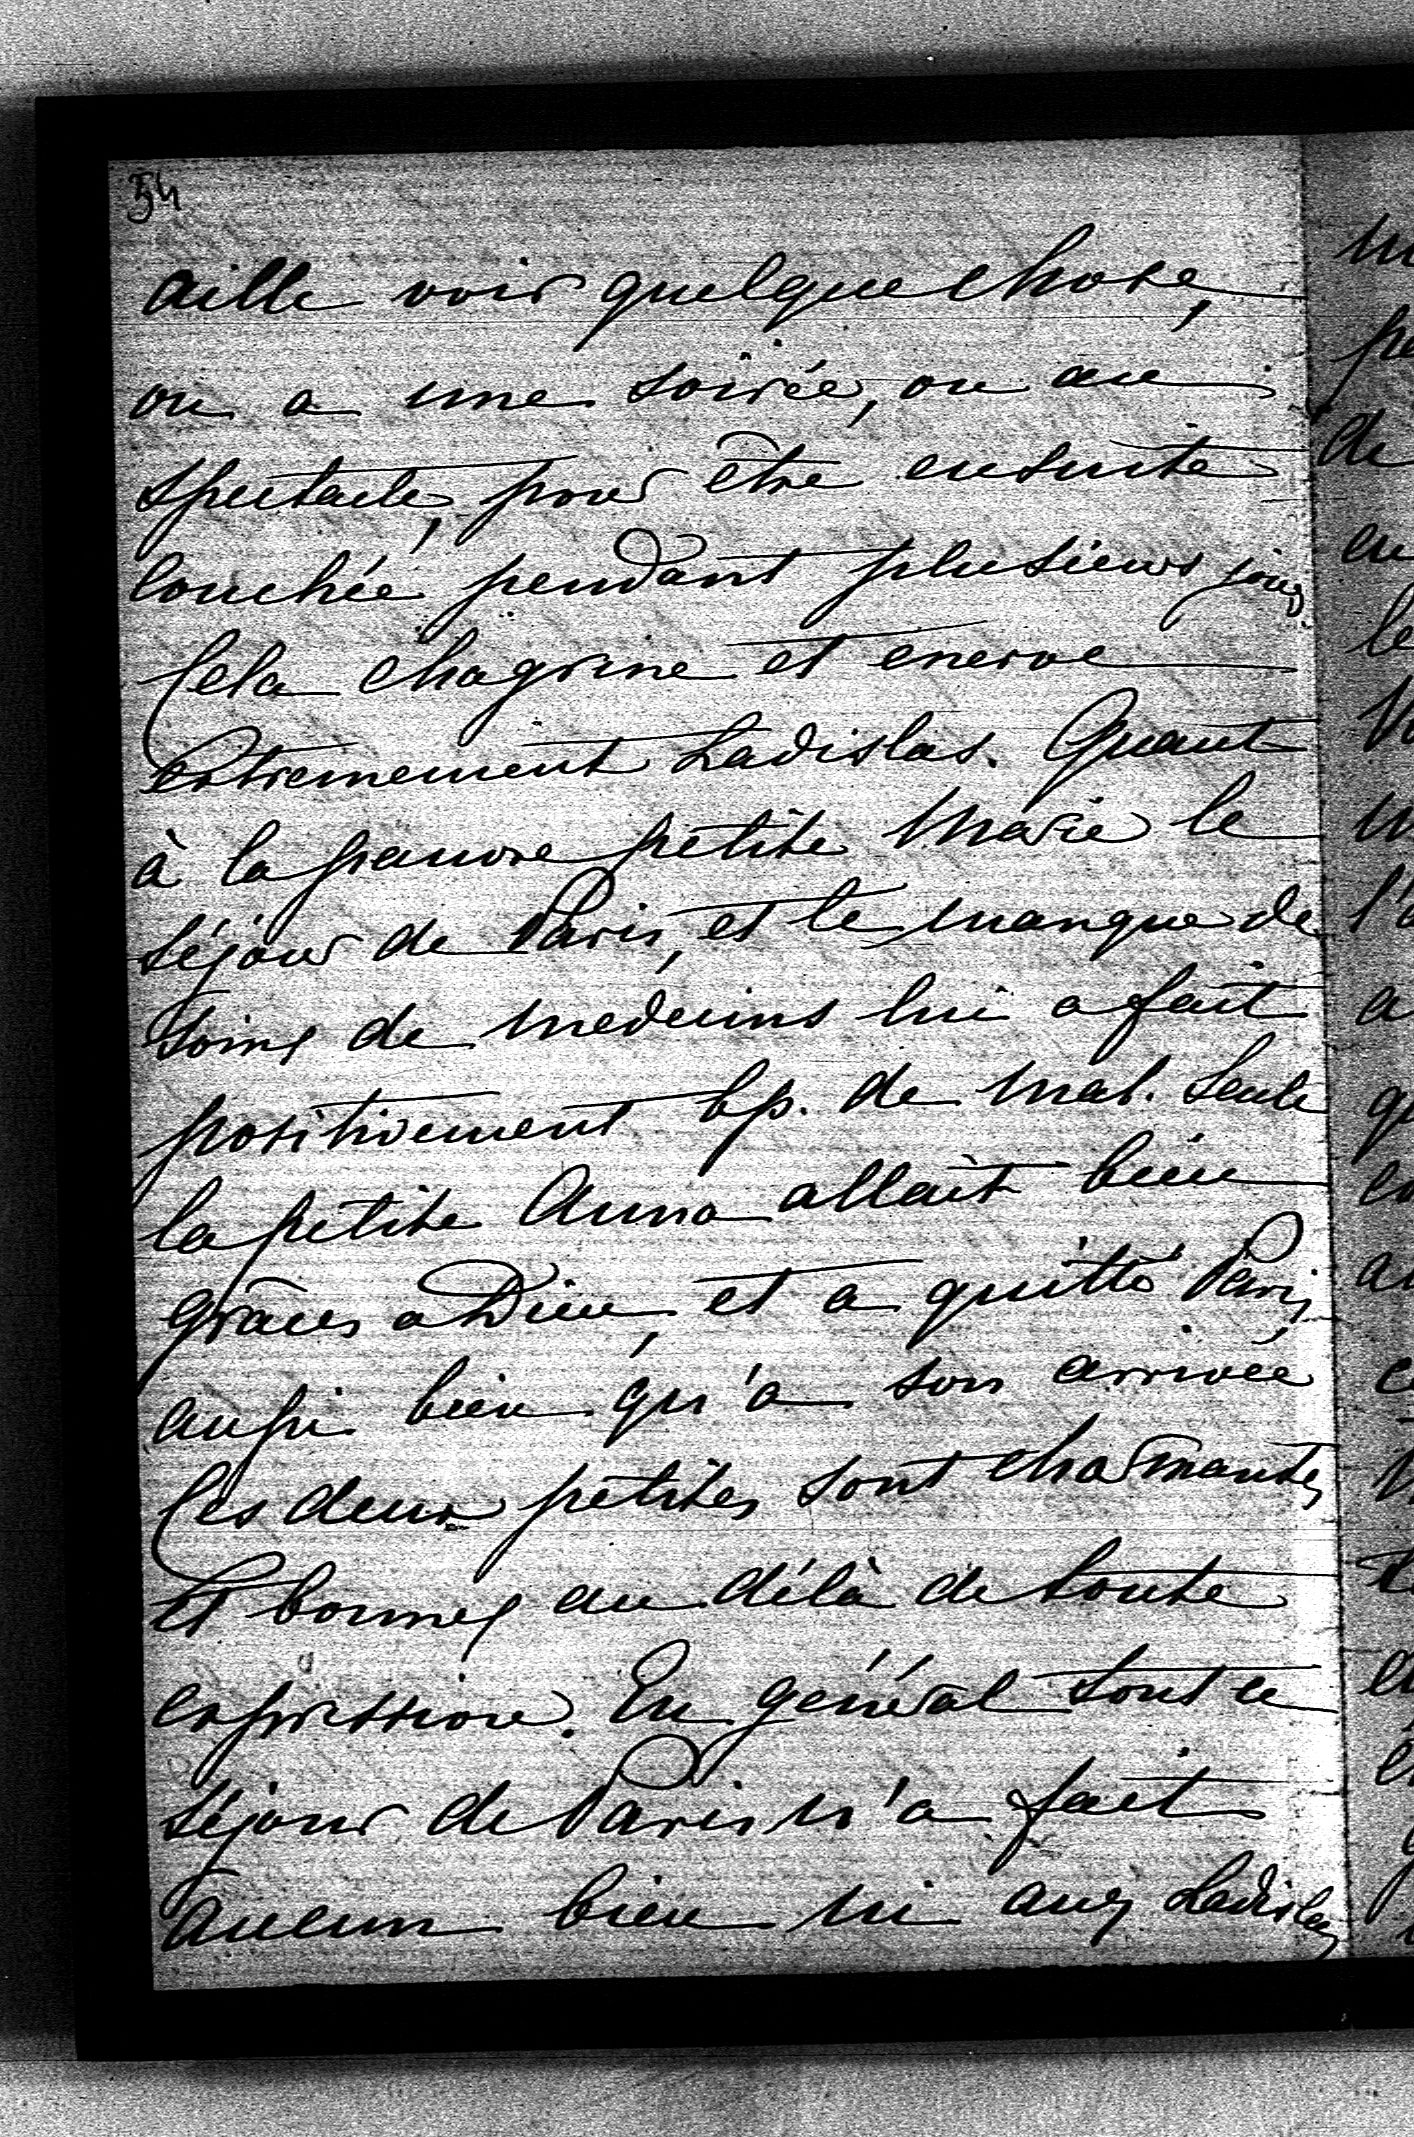 54
aille voir quelque chose,
ou a une soirée, ou au
spectacle, pour être ensuite
couchée pendant plusieurs jours.
Cela chagrine et enerve
extremement Ladislas. Quant
à la pauvre petite Marie le
séjour de Paris, et le manque de
soins de medecins lui a fait
positivement bp. de mal. Seule
la petite Anna allait bien
grâces a Dieu, et a quitté Paris
aussi bien qu'a son arrivée
Ces deux petites sont charmantes
et bonnes au délà de toute
expression. En général tout ce
séjour de Paris n'a fait
aucun bien ni aux Ladislas